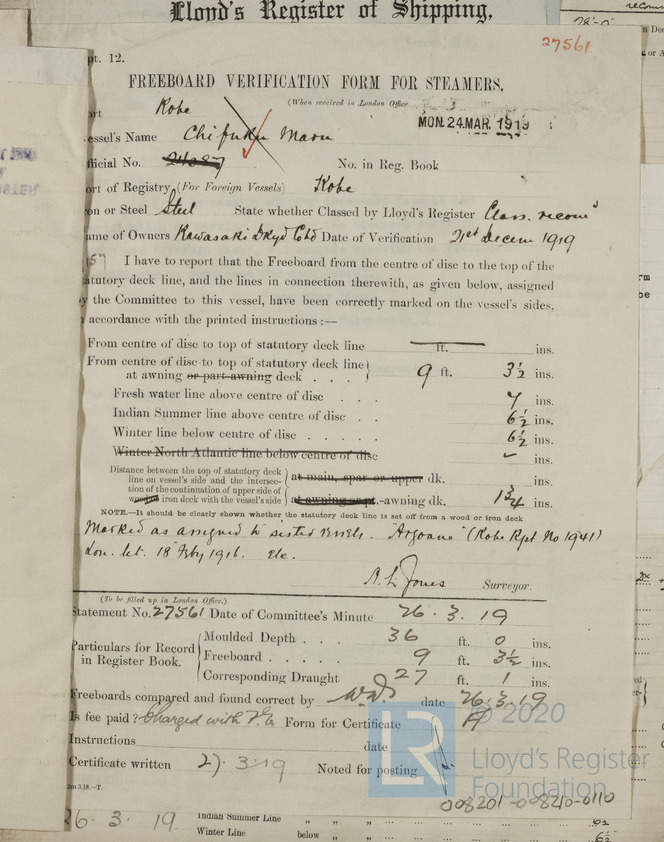 Lloyd's Register of Shipping,
27561
pt. 12.
FREEBOARD VERIFICATION FORM FOR STEAMERS.
(When received in London Office
ort Kobe
MON. 24 MAR. 1919
essel's Name Chifuku Maru
fficial No. No. in Reg. Book
ort of Registry (For Foreign Vessels) Kobe
on or Steel Steel State whether Classed by Lloyd's Register Class. recom^d
ame of Owners Kawasaki Dkyd C° Ltd Date of Verification 21st Decem 1919
157 I have to report that the Freeboard from the centre of disc to the top of the
tatutory deck line, and the lines in connection therewith, as given below, assigned
y the Committee to this vessel, have been correctly marked on the vessel's sides,
accordance with the printed instructions :—
From centre of disc to top of statutory deck line ft. ins.
From centre of disc to top of statutory deck line
at awning or part-awning deck . . . 9 ft. 3½ ins.
Fresh water line above centre of disc . . . 7 ins.
Indian Summer line above centre of disc . . 6½ ins.
Winter line below centre of disc . . . . . 6½ ins.
Winter North Atlantic line below centre of disc ins.
Distance between the top of statutory deck
line on vessel's side and the intersec-
tion of the continuation of upper side of
wood or iron deck with the vessel's side
at main, spar or upper dk.
at awning or pt.-awning dk. 1¾ ins.
NOTE.—It should be clearly shown whether the statutory deck line is set off from a wood or iron deck
Marked as assigned to sister vessels. "Argoane" (Kobe Rpt No 1941)
Lon. let. 18 Feby 1916. etc.
A. L. Jones Surveyor.
(To be filled up in London Office.)
Statement No. 27561 Date of Committee's Minute 26 . 3 . 19
Particulars for Record
in Register Book.
Moulded Depth . . . 36 ft. 0 ins.
Freeboard . . . . . 9 ft. 3½ ins.
Corresponding Draught 27 ft. 1 ins.
Freeboards compared and found correct by date 26.3.19
Is fee paid? Charged with F.E. Form for Certificate
Instructions date
Certificate written 27.3.19 Noted for posting
2m 3,18.—T.
© 2020
LR
Lloyd's Register
Foundation
008201-008210-0110
26. 3. 19
Indian Summer Line " " " 6½
Winter Line below " " 6½